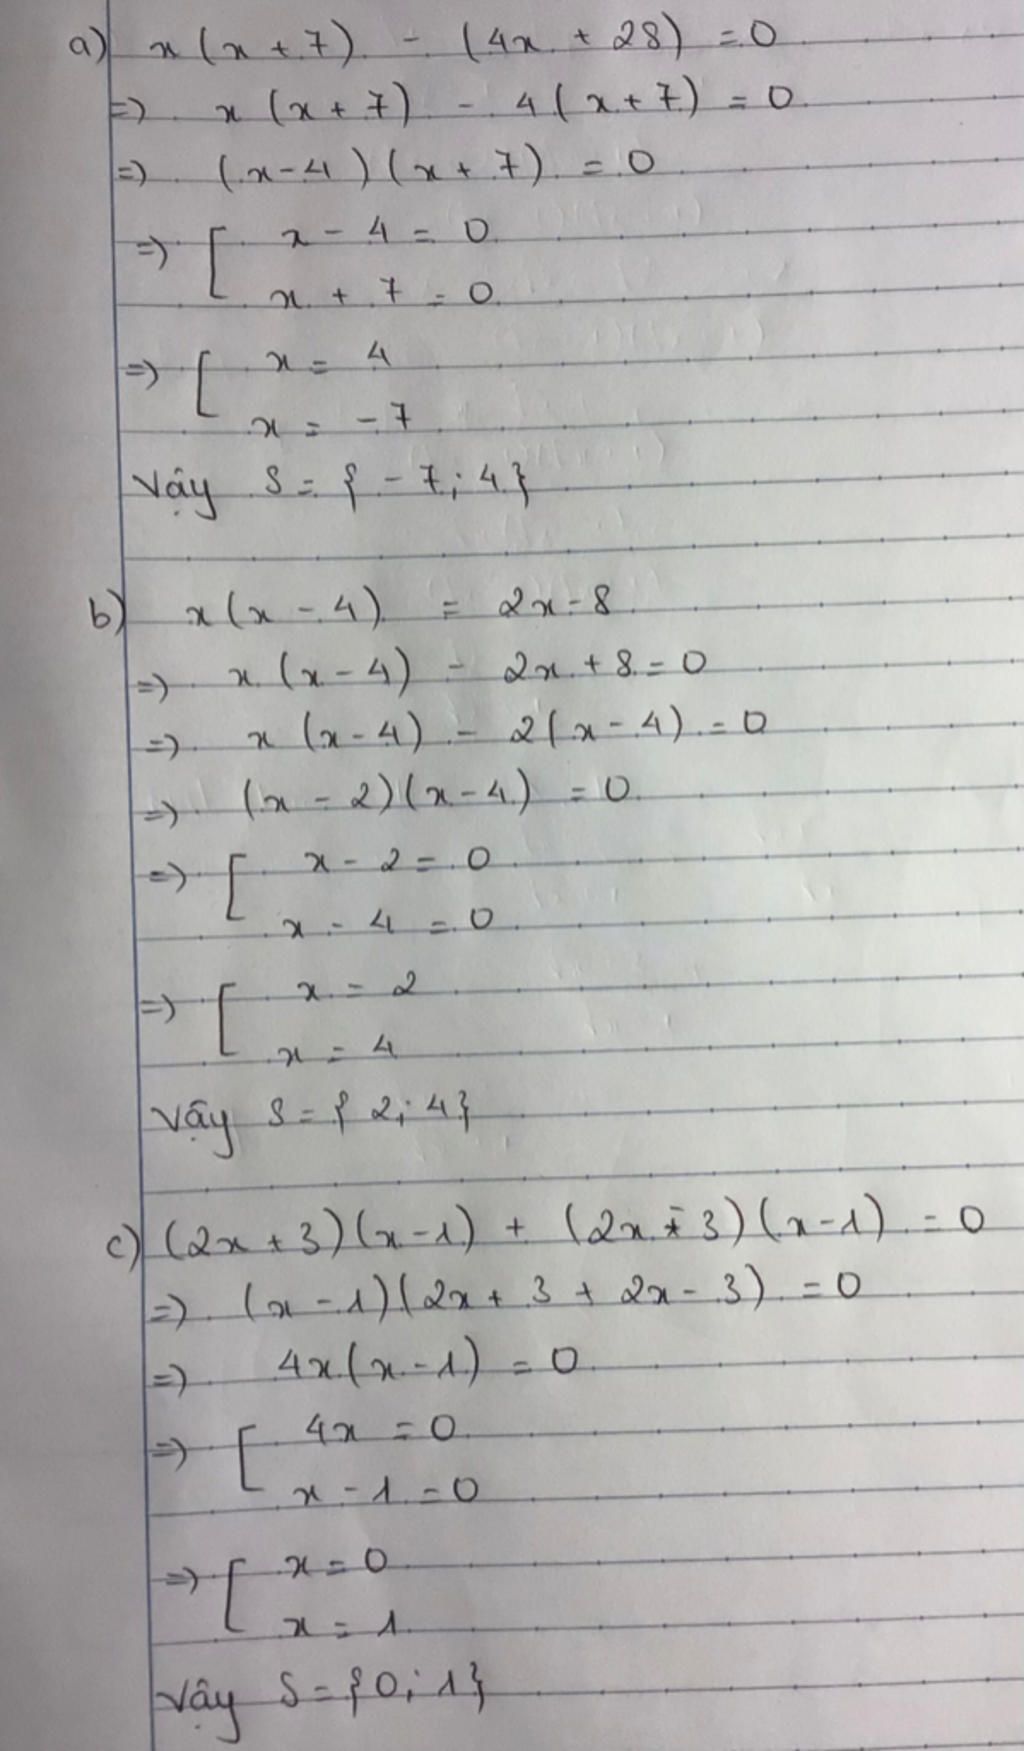 a) x(x+7) - (4x + 28) = 0
=) x(x+7) - 4(x+7) = 0
=) (x-4)(x+7) = 0
=) [ x - 4 = 0
x + 7 = 0
=) [ x = 4
x = -7
Vậy S = {-7; 4}
b) x(x-4) = 2x-8
=) x(x-4) - 2x+8=0
=) x(x-4) - 2(x-4) = 0
=) (x-2)(x-4) = 0
=) [ x - 2 = 0
x - 4 = 0
=) [ x = 2
x = 4
Vậy S = {2; 4}
c) (2x+3)(x-1) + (2x-3)(x-1) = 0
=) (x-1)(2x+3+2x-3) = 0
=) 4x(x-1) = 0
=) [ 4x = 0
x - 1 = 0
=) [ x = 0
x = 1
Vậy S = {0; 1}